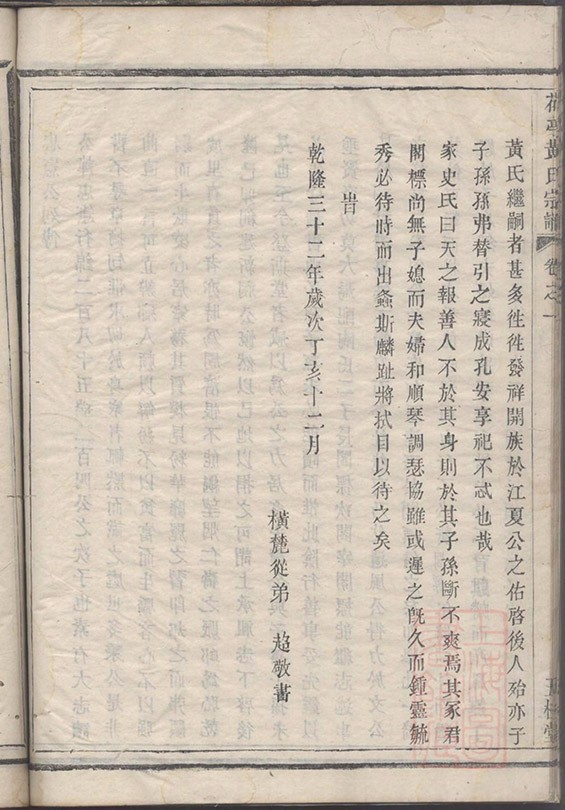 黃氏宗譜
卷之一
黃氏繼嗣者甚多徃徃發祥開族於江夏公之佑啓後人殆亦子
子孫孫弗替引之寢成孔安享祀不忒也哉
家史氏曰天之報善人不於其身則於其子孫斷不爽焉其冢君
閣標尚無子媳而夫婦和順琴調瑟協雖或遲之旣久而鍾靈毓
秀必待時而出螽斯麟趾將拭目以待之矣
旹
乾隆三十二年歲次丁亥十二月
橫麓從弟　趨敬書